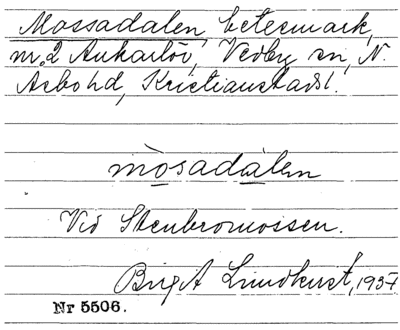 Mossadalen, betesmark,
nr 2 Ankarlöv, Vedby sn, N.
Åsbo hd, Kristianstads l.
mòsadàlen
Vid Stenbromossen.
Birgit Lundkvist, 1937
Nr 5506.